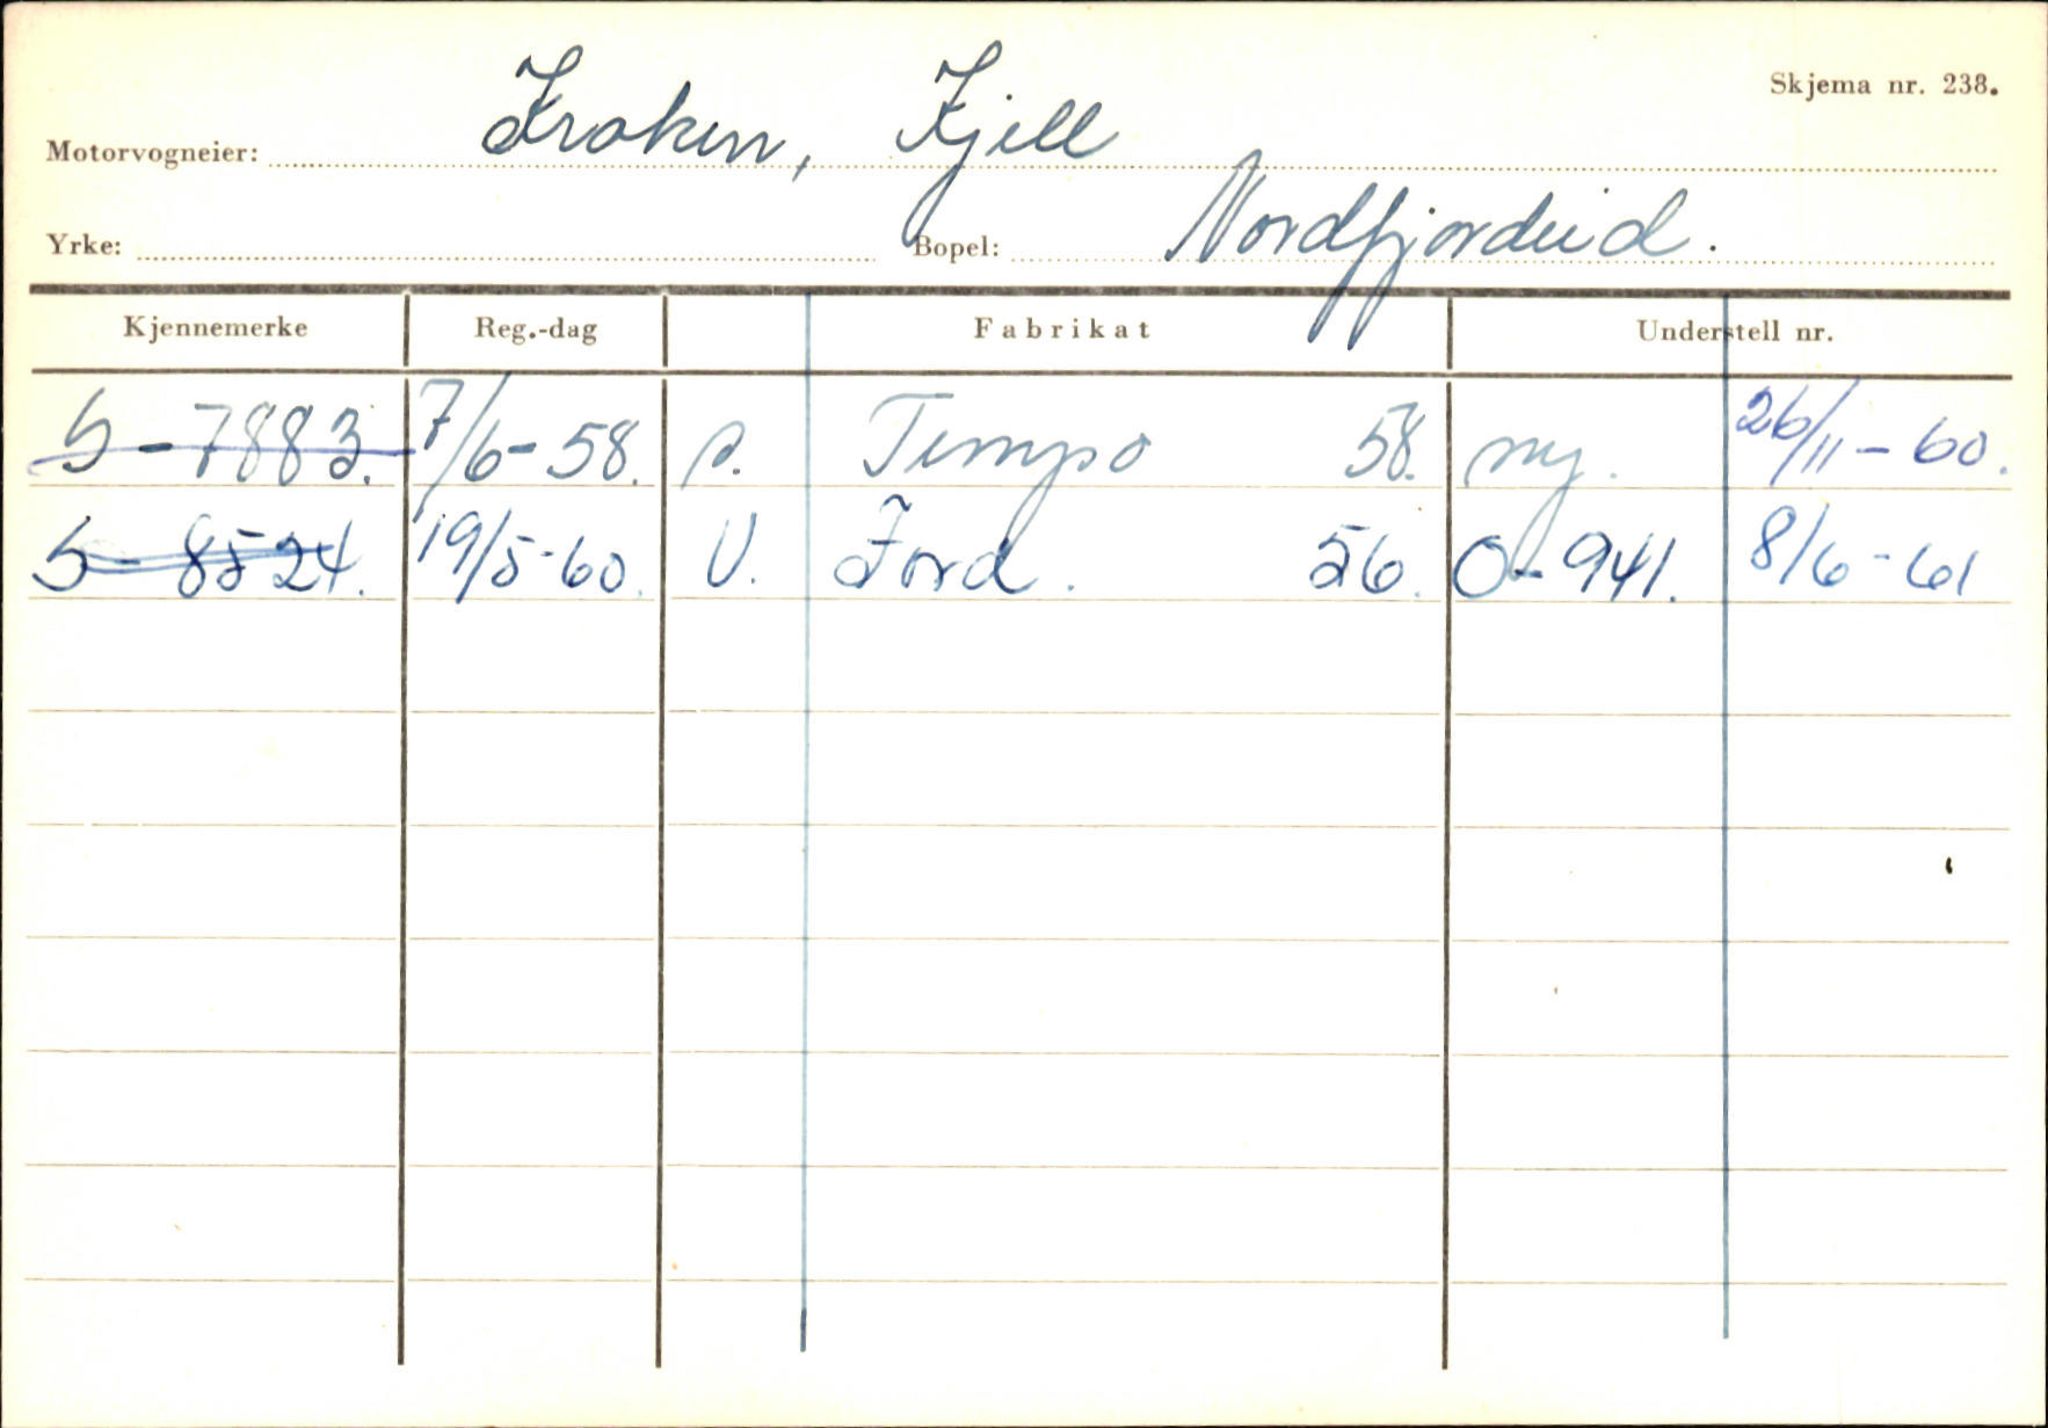 Skjema nr. 238.
Motorvogneier: Kroken, Kjell
Yrke: Bopel: Nordfjordeid.
Kjennemerke Reg.-dag Fabrikat Understell nr.
S-7883. 7/6-58. p. Tempo 58. ny. 26/11-60.
S-8524. 19/5-60. V. Ford. 56. O-941. 8/6-61